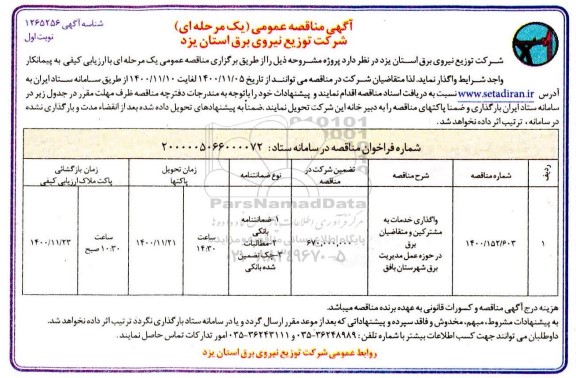 آگهی مناقصه عمومی (یک مرحله ای)
شرکت توزیع نیروی برق استان یزد
شناسه آگهی ۱۲۶۵۲۵۶
نوبت اول
شرکت توزیع نیروی برق استان یزد در نظر دارد پروژه مشروحه ذیل را از طریق برگزاری مناقصه عمومی یک مرحله ای با ارزیابی کیفی به پیمانکار
واجد شرایط واگذار نماید. لذا متقاضیان شرکت در مناقصه می توانند از تاریخ ۱۴۰۰/۱۱/۰۵ لغایت ۱۴۰۰/۱۱/۱۰ از طریق سامانه ستاد ایران به
آدرس www.setadiran.ir نسبت به دریافت اسناد مناقصه اقدام نمایند و پیشنهادات خود را باتوجه به مندرجات دفترچه مناقصه ظرف مهلت مقرر در جدول زیر در
سامانه ستاد ایران بارگذاری و ضمنا پاکتهای مناقصه را به دبیر خانه این شرکت تحویل نمایند. ضمناً به پیشنهادهای تحویل داده شده بعد از انقضاء مدت و بارگذاری نشده
در سامانه ، ترتیب اثر داده نخواهد شد.
شماره فراخوان مناقصه در سامانه ستاد: ۲۰۰۰۰۰۵۰۶۶۰۰۰۰۷۲
ردیف
شماره مناقصه
شرح مناقصه
تضمین شرکت در مناقصه
نوع ضمانتنامه
زمان تحویل پاکتها
زمان بازگشائی پاکت ملاک ارزیابی کیفی
۱
۱۴۰۰/۱۵۲/۶۰۳
واگذاری خدمات به
مشترکین و متقاضیان
برق
در حوزه عمل مدیریت
برق شهرستان بافق
۱-ضمانتنامه
بانکی
۲-مطالبات
۳-چک تضمین
شده بانکی
ساعت ۱۴:۳۰
۱۴۰۰/۱۱/۲۱
ساعت ۱۰:۳۰ صبح
۱۴۰۰/۱۱/۲۳
ParsNamadData
هزینه درج آگهی مناقصه و کسورات قانونی به عهده برنده مناقصه میباشد.
به پیشنهادات مشروط، مبهم، مخدوش و فاقد سپرده و پیشنهاداتی که بعد از موعد مقرر ارسال گردد و یا در سامانه ستاد بارگذاری نگردد ترتیب اثر داده نخواهد شد.
داوطلبان می توانند جهت کسب اطلاعات بیشتر با شماره تلفن : ۳۶۲۴۸۹۸۹-۰۳۵ و ۳۶۲۴۳۱۱۱-۰۳۵ امور تدارکات تماس حاصل نمایند.
روابط عمومی شرکت توزیع نیروی برق استان یزد